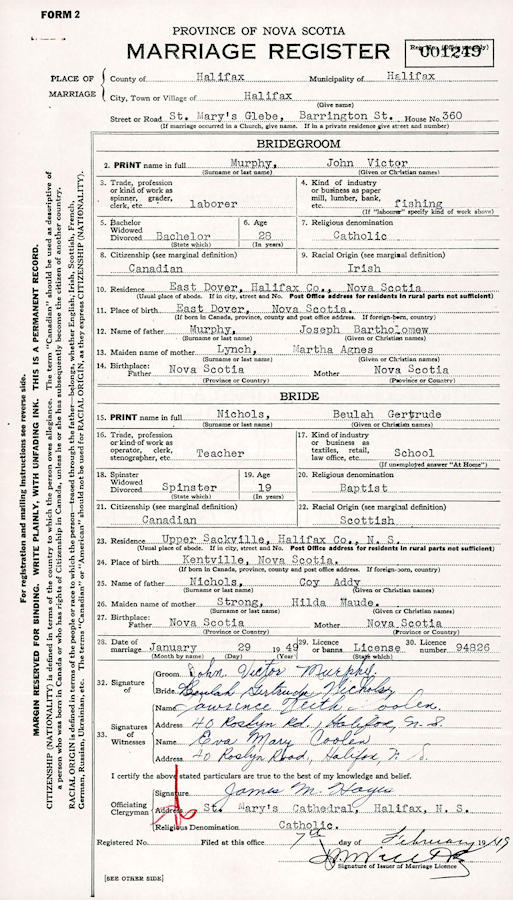 FORM 2
PROVINCE OF NOVA SCOTIA
MARRIAGE REGISTER
001249
PLACE OF MARRIAGE
County of Halifax Municipality of Halifax
City, Town or Village of Halifax
(Give name)
Street or Road St. Mary's Glebe, Barrington St. House No. 360
(If marriage occurred in a Church, give name. If in a private residence give street and number)
BRIDEGROOM
2. PRINT name in full Murphy, John Victor
(Surname or last name) (Given or Christian names)
3. Trade, profession or kind of work as spinner, grader, clerk, etc. laborer
4. Kind of industry or business as paper mill, lumber, bank, etc. fishing
(If "laborer" specify kind of work above)
5. Bachelor Widowed Divorced Bachelor
(State which)
6. Age 28
(In years)
7. Religious denomination
Catholic
8. Citizenship (see marginal definition)
Canadian
9. Racial Origin (see marginal definition)
Irish
10. Residence East Dover, Halifax Co., Nova Scotia
(Usual place of abode. If in city, street and No. Post Office address for residents in rural parts not sufficient)
11. Place of birth East Dover, Nova Scotia.
(If born in Canada, province, county and post office address. If foreign-born, country)
12. Name of father Murphy, Joseph Bartholomew
(Surname or last name) (Given or Christian names)
13. Maiden name of mother Lynch, Martha Agnes
(Surname or last name) (Given or Christian names)
14. Birthplace: Father Nova Scotia Mother Nova Scotia
(Province or Country) (Province or Country)
BRIDE
15. PRINT name in full Nichols, Beulah Gertrude
(Surname or last name) (Given or Christian names)
16. Trade, profession or kind of work as operator, clerk, stenographer, etc Teacher
17. Kind of industry or business as textiles, retail, law office, etc. School
(If unemployed answer "At Home")
18. Spinster Widowed Divorced Spinster
(State which)
19. Age 19
(In years)
20. Religious denomination
Baptist
21. Citizenship (see marginal definition)
Canadian
22. Racial Origin (see marginal definition)
Scottish
23. Residence Upper Sackville, Halifax Co., N. S.
(Usual place of abode. If in city, street and No. Post Office address for residents in rural parts not sufficient)
24. Place of birth Kentville, Nova Scotia.
(If born in Canada, province, county and post office address. If foreign-born, country)
25. Name of father Nichols, Coy Addy
(Surname or last name) (Given or Christian names)
26. Maiden name of mother Strong, Hilda Maude.
(Surname or last name) (Given or Christian names)
27. Birthplace: Father Nova Scotia Mother Nova Scotia
(Province or Country) (Province or Country)
28. Date of marriage January 29 1949
(Month by name) (Day) (Year)
29. Licence or banns License
(State which)
30. License number 94826
32. Signature of
Groom John Victor Murphy
Bride Beulah Gertrude Nichols
33. Signatures of Witnesses
Name Lawrence Keith Coolen
Address 40 Roslyn Rd., Halifax, N. S.
Name Eva Mary Coolen
Address 40 Roslyn Road, Halifax, N. S.
I certify the above stated particulars are true to the best of my knowledge and belief.
Officiating Clergyman
Signature James M. Hayes
Address St. Mary's Cathedral, Halifax, N. S.
Religious Denomination Catholic.
Registered No. Filed at this office 7th day of February 1949
Signature of Issuer of Marriage Licence
[SEE OTHER SIDE]
For registration and mailing instructions see reverse side.
MARGIN RESERVED FOR BINDING. WRITE PLAINLY, WITH UNFADING INK. THIS IS A PERMANENT RECORD.
CITIZENSHIP (NATIONALITY) is defined in terms of the country to which the person owes allegiance. The term "Canadian" should be used as descriptive of
a person who was born in Canada or who has rights of Citizenship in Canada, unless he or she has subsequently become the citizen of another country.
RACIAL ORIGIN is defined in terms of the people or race to which the person—traced through the father—belongs, whether English, Irish, Scottish, French,
German, Russian, Ukrainian, etc. The terms "Canadian" or "American" should not be used for RACIAL ORIGIN, as they express CITIZENSHIP (NATIONALITY).